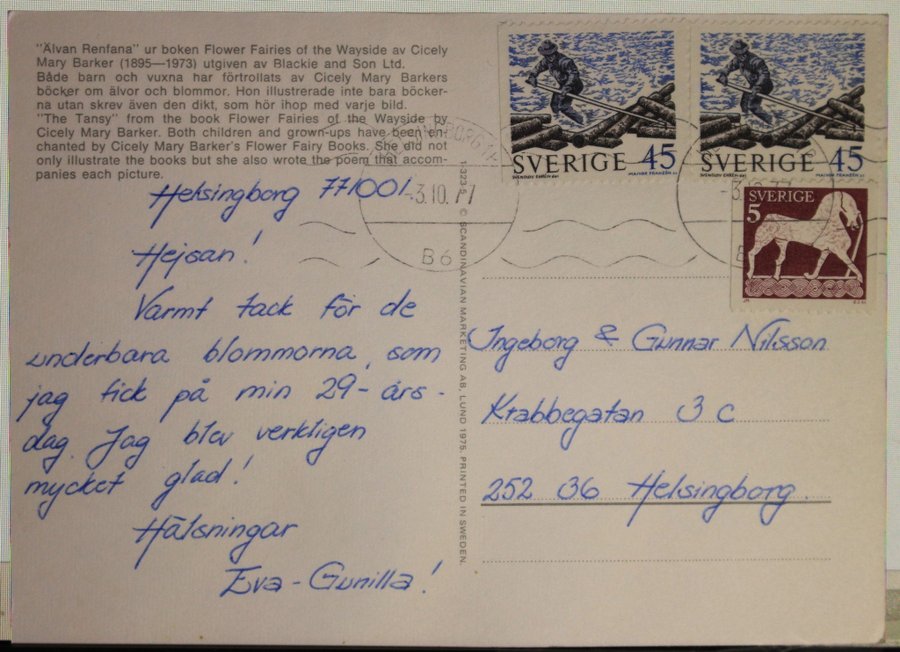 "Älvan Renfana" ur boken Flower Fairies of the Wayside av Cicely
Mary Barker (1895—1973) utgiven av Blackie and Son Ltd.
Både barn och vuxna har förtrollats av Cicely Mary Barkers
böcker om älvor och blommor. Hon illustrerade inte bara böcker-
na utan skrev även den dikt, som hör ihop med varje bild.
"The Tansy" from the book Flower Fairies of the Wayside by
Cicely Mary Barker. Both children and grown-ups have been en-
chanted by Cicely Mary Barker's Flower Fairy Books. She did not
only illustrate the books but she also wrote the poem that accom-
panies each picture.
Helsingborg 771001
Hejsan!
Varmt tack för de
underbara blommorna, som
jag fick på min 29-års-
dag. Jag blev verkligen
mycket glad!
Hälsningar
Eva-Gunilla!
1-323-5 © SCANDINAVIAN MARKETING AB, LUND 1975. PRINTED IN SWEDEN.
SVERIGE 45
SVERIGE 45
SVERIGE
5
-3.10.77
B6
Ingeborg & Gunnar Nilsson
Krabbegatan 3 c
252 36 Helsingborg.